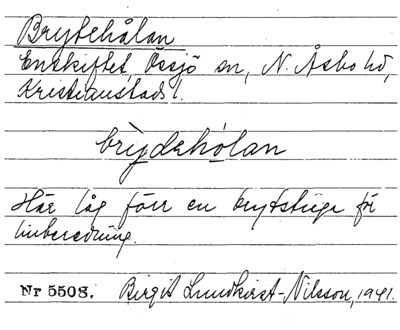 Brytehålan
Enskiftet, Össjö sn, N. Åsbo hd,
Kristianstads l.
brydehòlan
Här låg förr en brytstuga för
linberedning.
Nr 5508. Birgit Lundkvist-Nilsson, 1941.